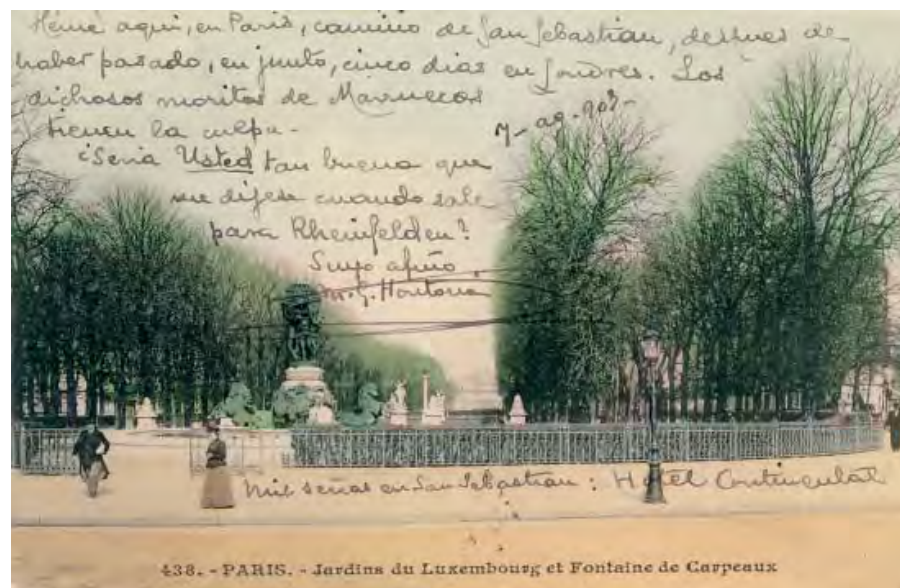 Héme aqui, en Paris, camino de San Sebastian, despues de
haber pasado, en junto, cinco dias en Londres. Los
dichosos moritos de Marruecos
tienen la culpa.
7-ag-903-
¿Seria Usted tan buena que
me dijese cuando sale
para Rheinfelden?
Suyo afmo.
M. G. Hontoria
Mis señas en San Sebastian: Hotel Continental
438. - PARIS. - Jardins du Luxembourg et Fontaine de Carpeaux